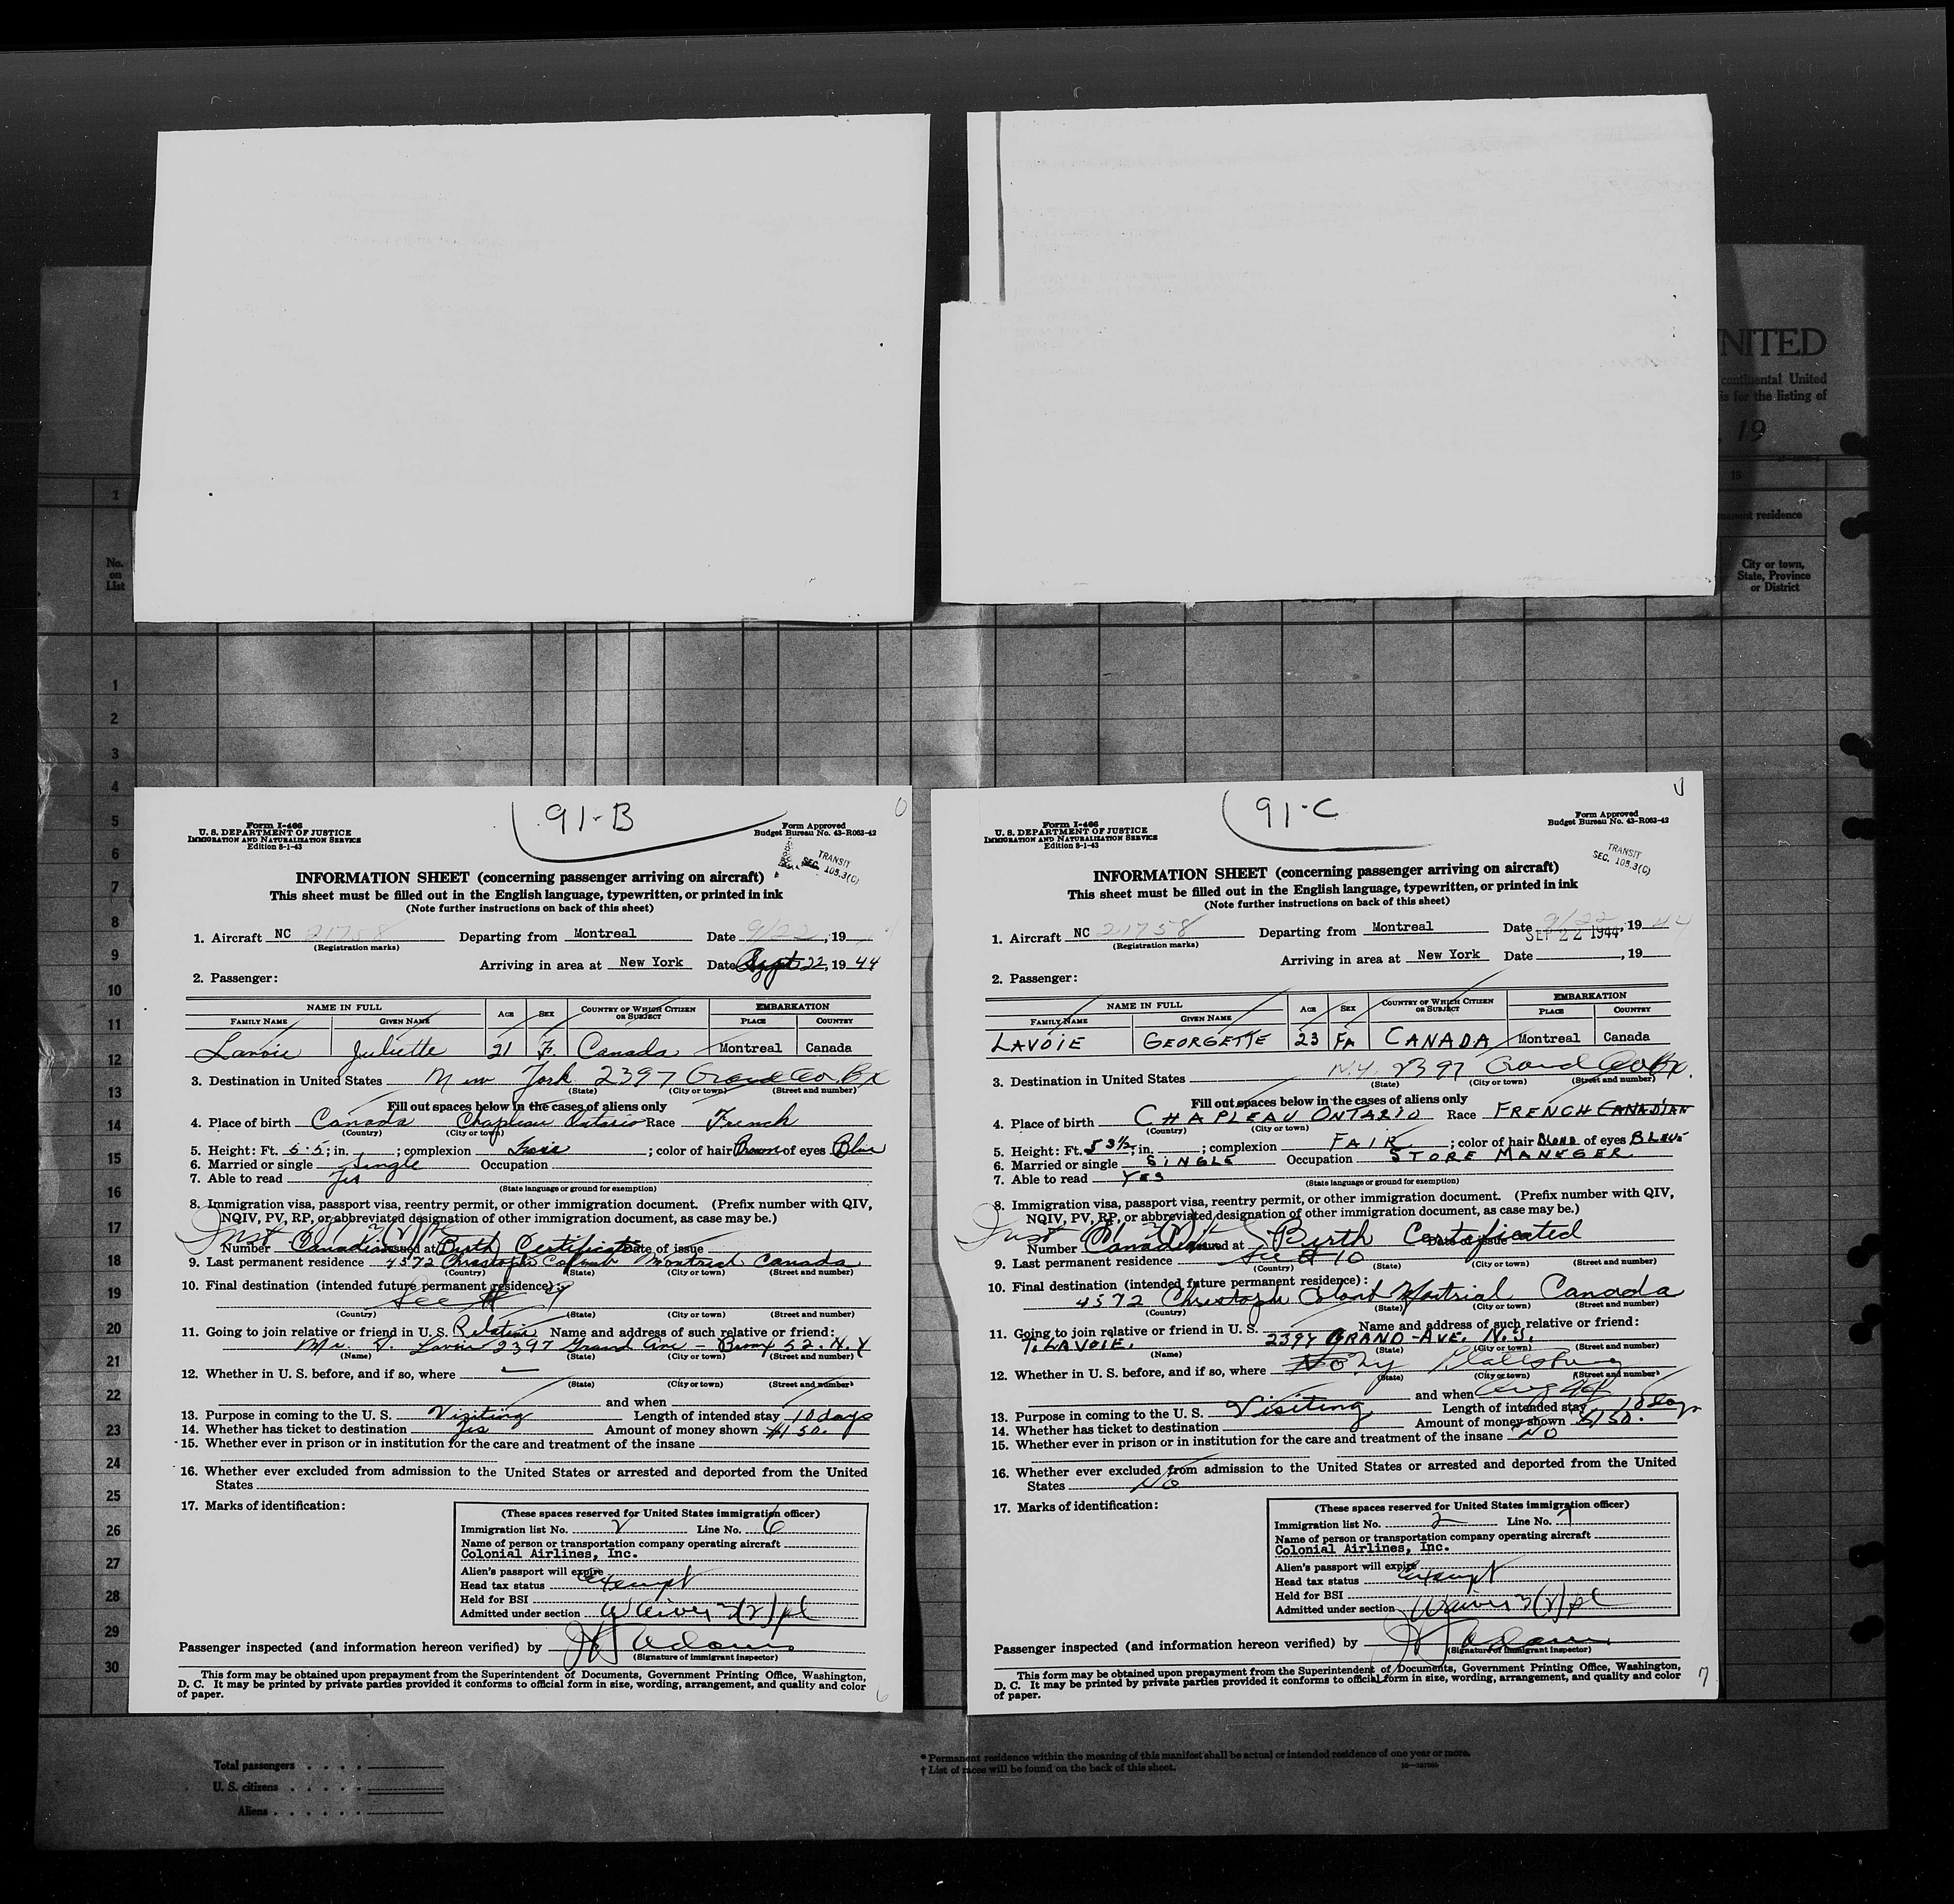 NITED
continental United
is for the listing of
, 19
15
1
manent residence
No.
on
List
City or town,
State, Province
or District
1
2
3
4
5
6
7
8
9
10
11
12
13
14
15
16
17
18
19
20
21
22
23
24
25
26
27
28
29
30
91-B
Form I-466
U. S. DEPARTMENT OF JUSTICE
IMMIGRATION AND NATURALIZATION SERVICE
Edition 8-1-43
Form Approved
Budget Bureau No. 43-R063-42
TRANSIT
SEC. 105.3(C)
INFORMATION SHEET (concerning passenger arriving on aircraft)
This sheet must be filled out in the English language, typewritten, or printed in ink
(Note further instructions on back of this sheet)
1. Aircraft NC 21758 Departing from Montreal Date 9/22, 19
(Registration marks)
Arriving in area at New York Date Sept 22, 19 44
2. Passenger:
NAME IN FULL AGE SEX COUNTRY OF WHICH CITIZEN OR SUBJECT EMBARKATION
FAMILY NAME GIVEN NAME PLACE COUNTRY
Lavoie Juliette 21 F. Canada Montreal Canada
3. Destination in United States New York 2397 Grand Av. Bx
(State) (City or town) (Street and number)
Fill out spaces below in the cases of aliens only
4. Place of birth Canada Chapleau Ontario Race French
(Country) (City or town)
5. Height: Ft. 5.5; in. ; complexion Fair ; color of hair Brown of eyes Blue
6. Married or single Single Occupation
7. Able to read Yes
(State language or ground for exemption)
8. Immigration visa, passport visa, reentry permit, or other immigration document. (Prefix number with QIV,
NQIV, PV, RP, or abbreviated designation of other immigration document, as case may be.)
Number Canadian Issued at Birth Certificate Date of issue
9. Last permanent residence 4572 Christophe Colomb Montreal Canada
(Country) (State) (City or town) (Street and number)
10. Final destination (intended future permanent residence):
See # 9
(Country) (State) (City or town) (Street and number)
11. Going to join relative or friend in U. S. Relative Name and address of such relative or friend:
Mr. T. Lavoie 2397 Grand Ave - Bronx 52. N.Y
(Name) (State) (City or town) (Street and number)
12. Whether in U. S. before, and if so, where
(State) (City or town) (Street and number)
and when
13. Purpose in coming to the U. S. Visiting Length of intended stay 10 days
14. Whether has ticket to destination Yes Amount of money shown $150.
15. Whether ever in prison or in institution for the care and treatment of the insane
16. Whether ever excluded from admission to the United States or arrested and deported from the United
States
17. Marks of identification:
(These spaces reserved for United States immigration officer)
Immigration list No. 2 Line No. 6
Name of person or transportation company operating aircraft
Colonial Airlines, Inc.
Alien's passport will expire
Head tax status exempt
Held for BSI
Admitted under section Waiver 3(2) pl
Passenger inspected (and information hereon verified) by Adams
(Signature of immigrant inspector)
This form may be obtained upon prepayment from the Superintendent of Documents, Government Printing Office, Washington,
D. C. It may be printed by private parties provided it conforms to official form in size, wording, arrangement, and quality and color
of paper.
6
91-C
Form I-466
U. S. DEPARTMENT OF JUSTICE
IMMIGRATION AND NATURALIZATION SERVICE
Edition 8-1-43
Form Approved
Budget Bureau No. 43-R063-42
TRANSIT
SEC. 105.3(C)
INFORMATION SHEET (concerning passenger arriving on aircraft)
This sheet must be filled out in the English language, typewritten, or printed in ink
(Note further instructions on back of this sheet)
1. Aircraft NC 21758 Departing from Montreal Date 9/22, 19 44
(Registration marks)
SEP 22 1944
Arriving in area at New York Date , 19
2. Passenger:
NAME IN FULL AGE SEX COUNTRY OF WHICH CITIZEN OR SUBJECT EMBARKATION
FAMILY NAME GIVEN NAME PLACE COUNTRY
LAVOIE GEORGETTE 23 FA CANADA Montreal Canada
3. Destination in United States N.Y. 2397 Grand Av Bx.
(State) (City or town) (Street and number)
Fill out spaces below in the cases of aliens only
4. Place of birth CHAPLEAU ONTARIO Race FRENCH CANADIAN
(Country) (City or town)
5. Height: Ft. 5 3½; in. ; complexion FAIR ; color of hair BLOND of eyes BLEUE
6. Married or single SINGLE Occupation STORE MANEGER
7. Able to read YES
(State language or ground for exemption)
8. Immigration visa, passport visa, reentry permit, or other immigration document. (Prefix number with QIV,
NQIV, PV, RP, or abbreviated designation of other immigration document, as case may be.)
Number Canadian Issued at Birth Certificated Date of issue
9. Last permanent residence See # 10
(Country) (State) (City or town) (Street and number)
10. Final destination (intended future permanent residence):
4572 Christoph Colomb Montrial Canada
(Country) (State) (City or town) (Street and number)
11. Going to join relative or friend in U. S. Name and address of such relative or friend:
T. LAVOIE. 2397 GRAND-AVE. N.Y.
(Name) (State) (City or town) (Street and number)
12. Whether in U. S. before, and if so, where No Ny Plattsburg
(State) (City or town) (Street and number)
and when Aug 44
13. Purpose in coming to the U. S. Visiting Length of intended stay 10 days
14. Whether has ticket to destination Amount of money shown $150.
15. Whether ever in prison or in institution for the care and treatment of the insane NO
16. Whether ever excluded from admission to the United States or arrested and deported from the United
States No
17. Marks of identification:
(These spaces reserved for United States immigration officer)
Immigration list No. 2 Line No. 7
Name of person or transportation company operating aircraft
Colonial Airlines, Inc.
Alien's passport will expire
Head tax status Exempt
Held for BSI
Admitted under section Waiver 3(2) pl
Passenger inspected (and information hereon verified) by Adams
(Signature of immigrant inspector)
This form may be obtained upon prepayment from the Superintendent of Documents, Government Printing Office, Washington,
D. C. It may be printed by private parties provided it conforms to official form in size, wording, arrangement, and quality and color
of paper.
7
Total passengers . . . .
U. S. citizens . . . . .
Aliens . . . . . .
* Permanent residence within the meaning of this manifest shall be actual or intended residence of one year or more.
† List of races will be found on the back of this sheet.